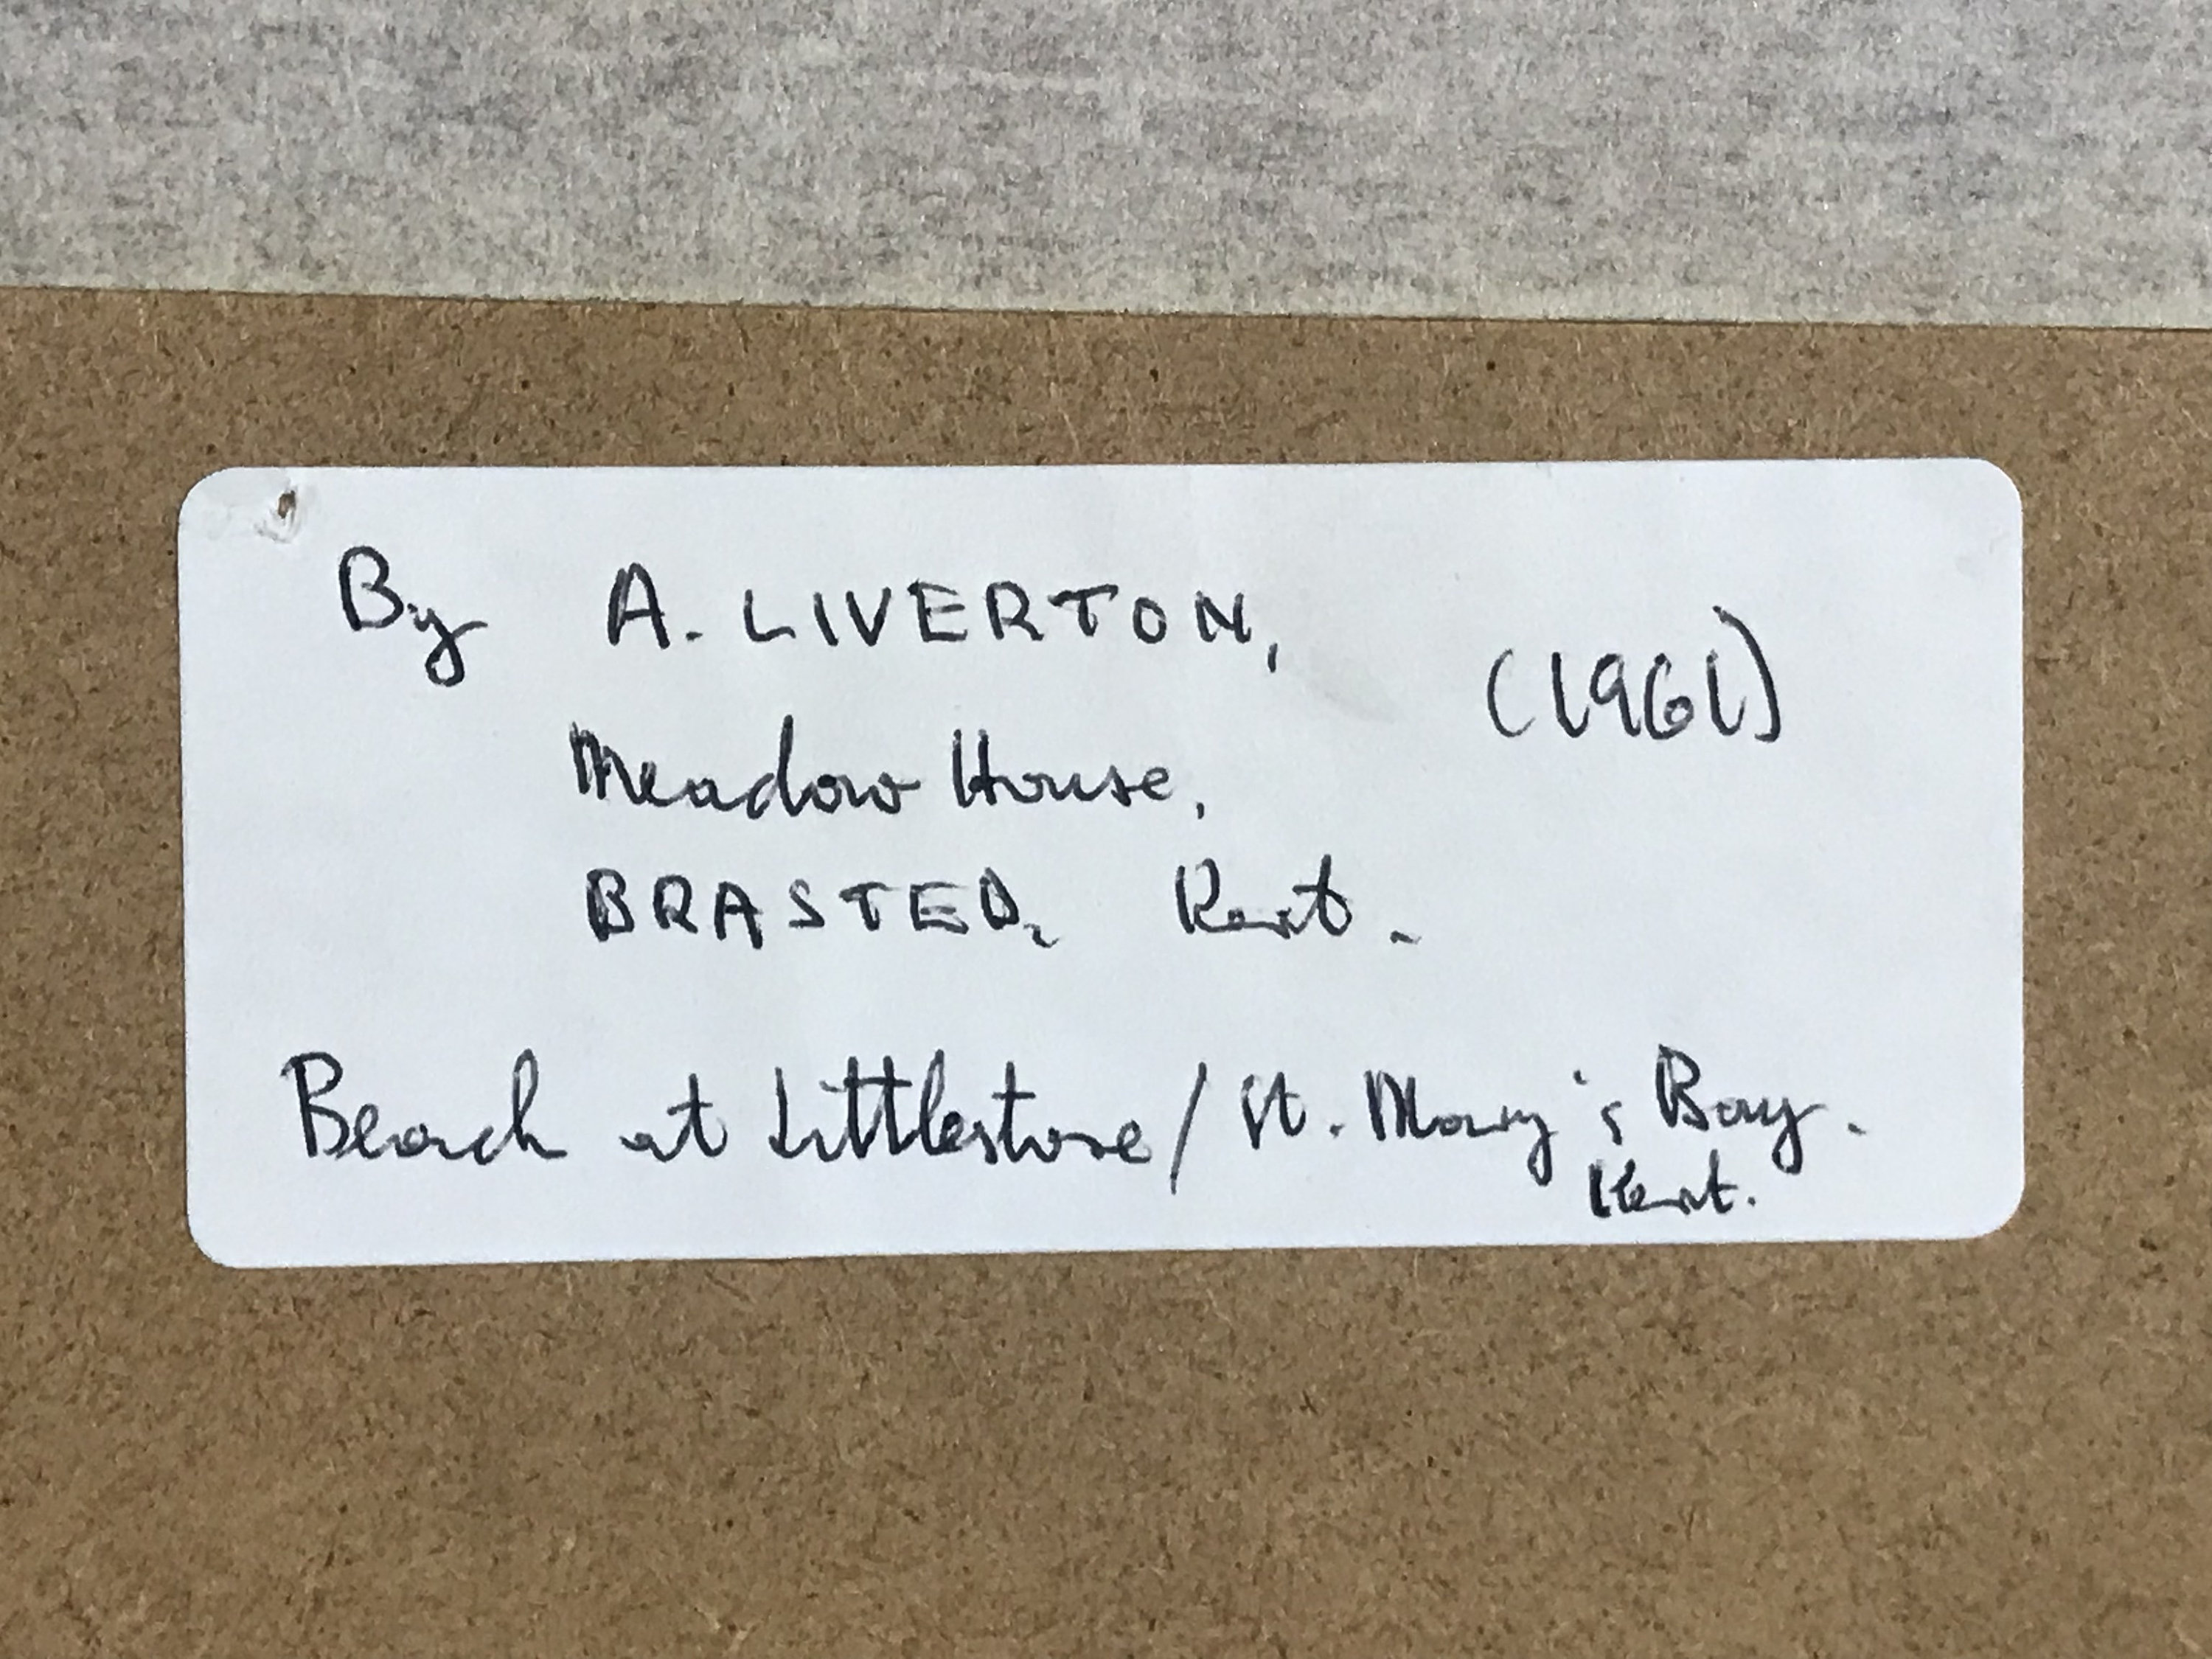 By A. LIVERTON, (1961)
Meadow House,
BRASTED, Kent.
Beach at Littlestone / St. Mary's Bay.
Kent.